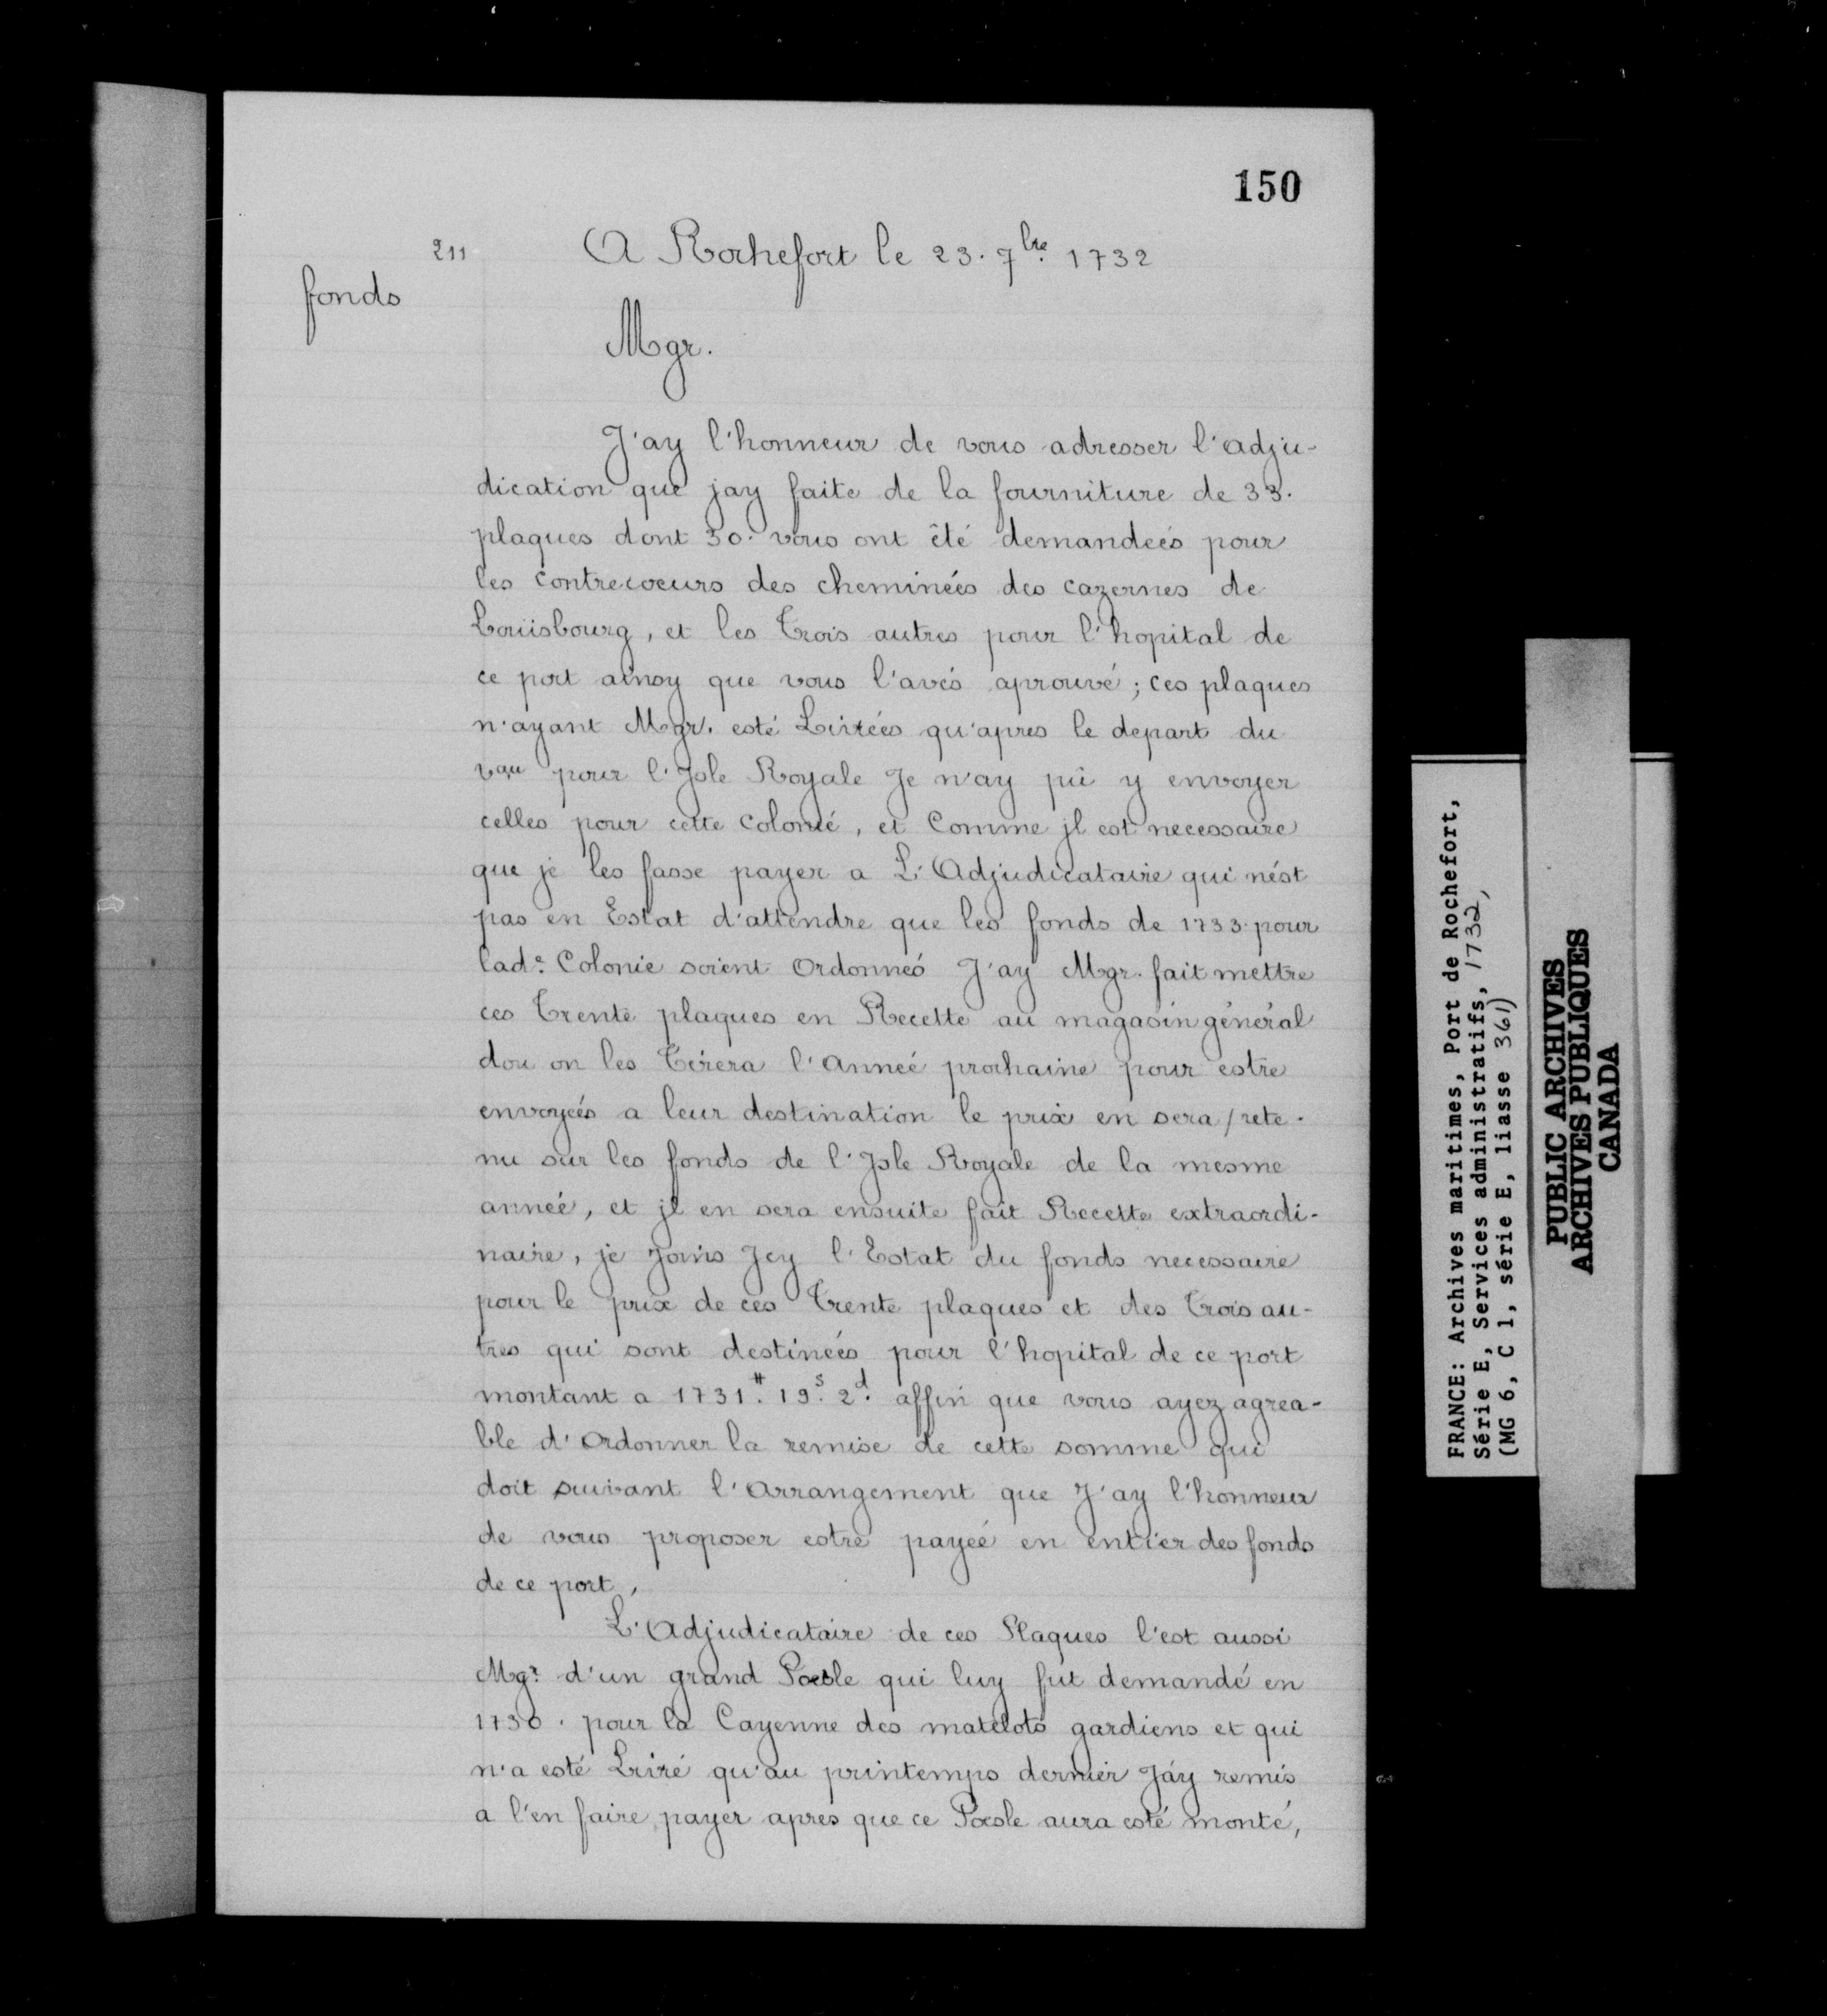 150
211
A Rochefort le 23. 7bre. 1732
fonds
Mgr.
J'ay l'honneur de vous adresser l'adju-
dication que jay faite de la fourniture de 33.
plaques dont 30. vous ont êté demandeés pour
les contrecoeurs des cheminées des cazernes de
Loüisbourg, et les Trois autres pour l'hopital de
ce port ainsy que vous l'avés aprouvé; ces plaques
n'ayant Mgr. esté Livrées qu'apres le depart du
vau pour l'Isle Royale Je n'ay pû y envoyer
celles pour cette colonie, et Comme jl est necessaire
que je les fasse payer a L'Adjudicataire qui nést
pas en Estat d'attendre que les fonds de 1733. pour
lade. Colonie soient Ordonnés J'ay Mgr. fait mettre
ces Trente plaques en Recette au magasin général
dou on les Tirera l'Anneé prochaine pour estre
envoyées a leur destination le prix en sera/rete-
nu sur les fonds de l'Isle Royale de la mesme
anneé, et jl en sera ensuite fait Recette extraordi-
naire, je Joins Jcy l'Estat du fonds necessaire
pour le prix de ces Trente plaques et des Trois au-
tres qui sont destinées pour l'hopital de ce port
montant a 1731.# 19.s 2.d affin que vous ayez agrea-
ble d'Ordonner la remise de cette somme qui
doit suivant l'Arrangement que J'ay l'honneur
de vous proposer estre payeé en entier des fonds
de ce port,
L'Adjudicataire de ces Plaques l'est aussi
Mgr. d'un grand Poesle qui luy fut demandé en
1730. pour la Cayenne des matelots gardiens et qui
n'a esté Livré qu'au printemps dernier Jáy remis
a l'en faire payer apres que ce Poesle aura esté monté,
FRANCE: Archives maritimes, Port de Rochefort,
Série E, Services administratifs, 1732,
(MG 6, C 1, série E, liasse 361)
PUBLIC ARCHIVES
ARCHIVES PUBLIQUES
CANADA